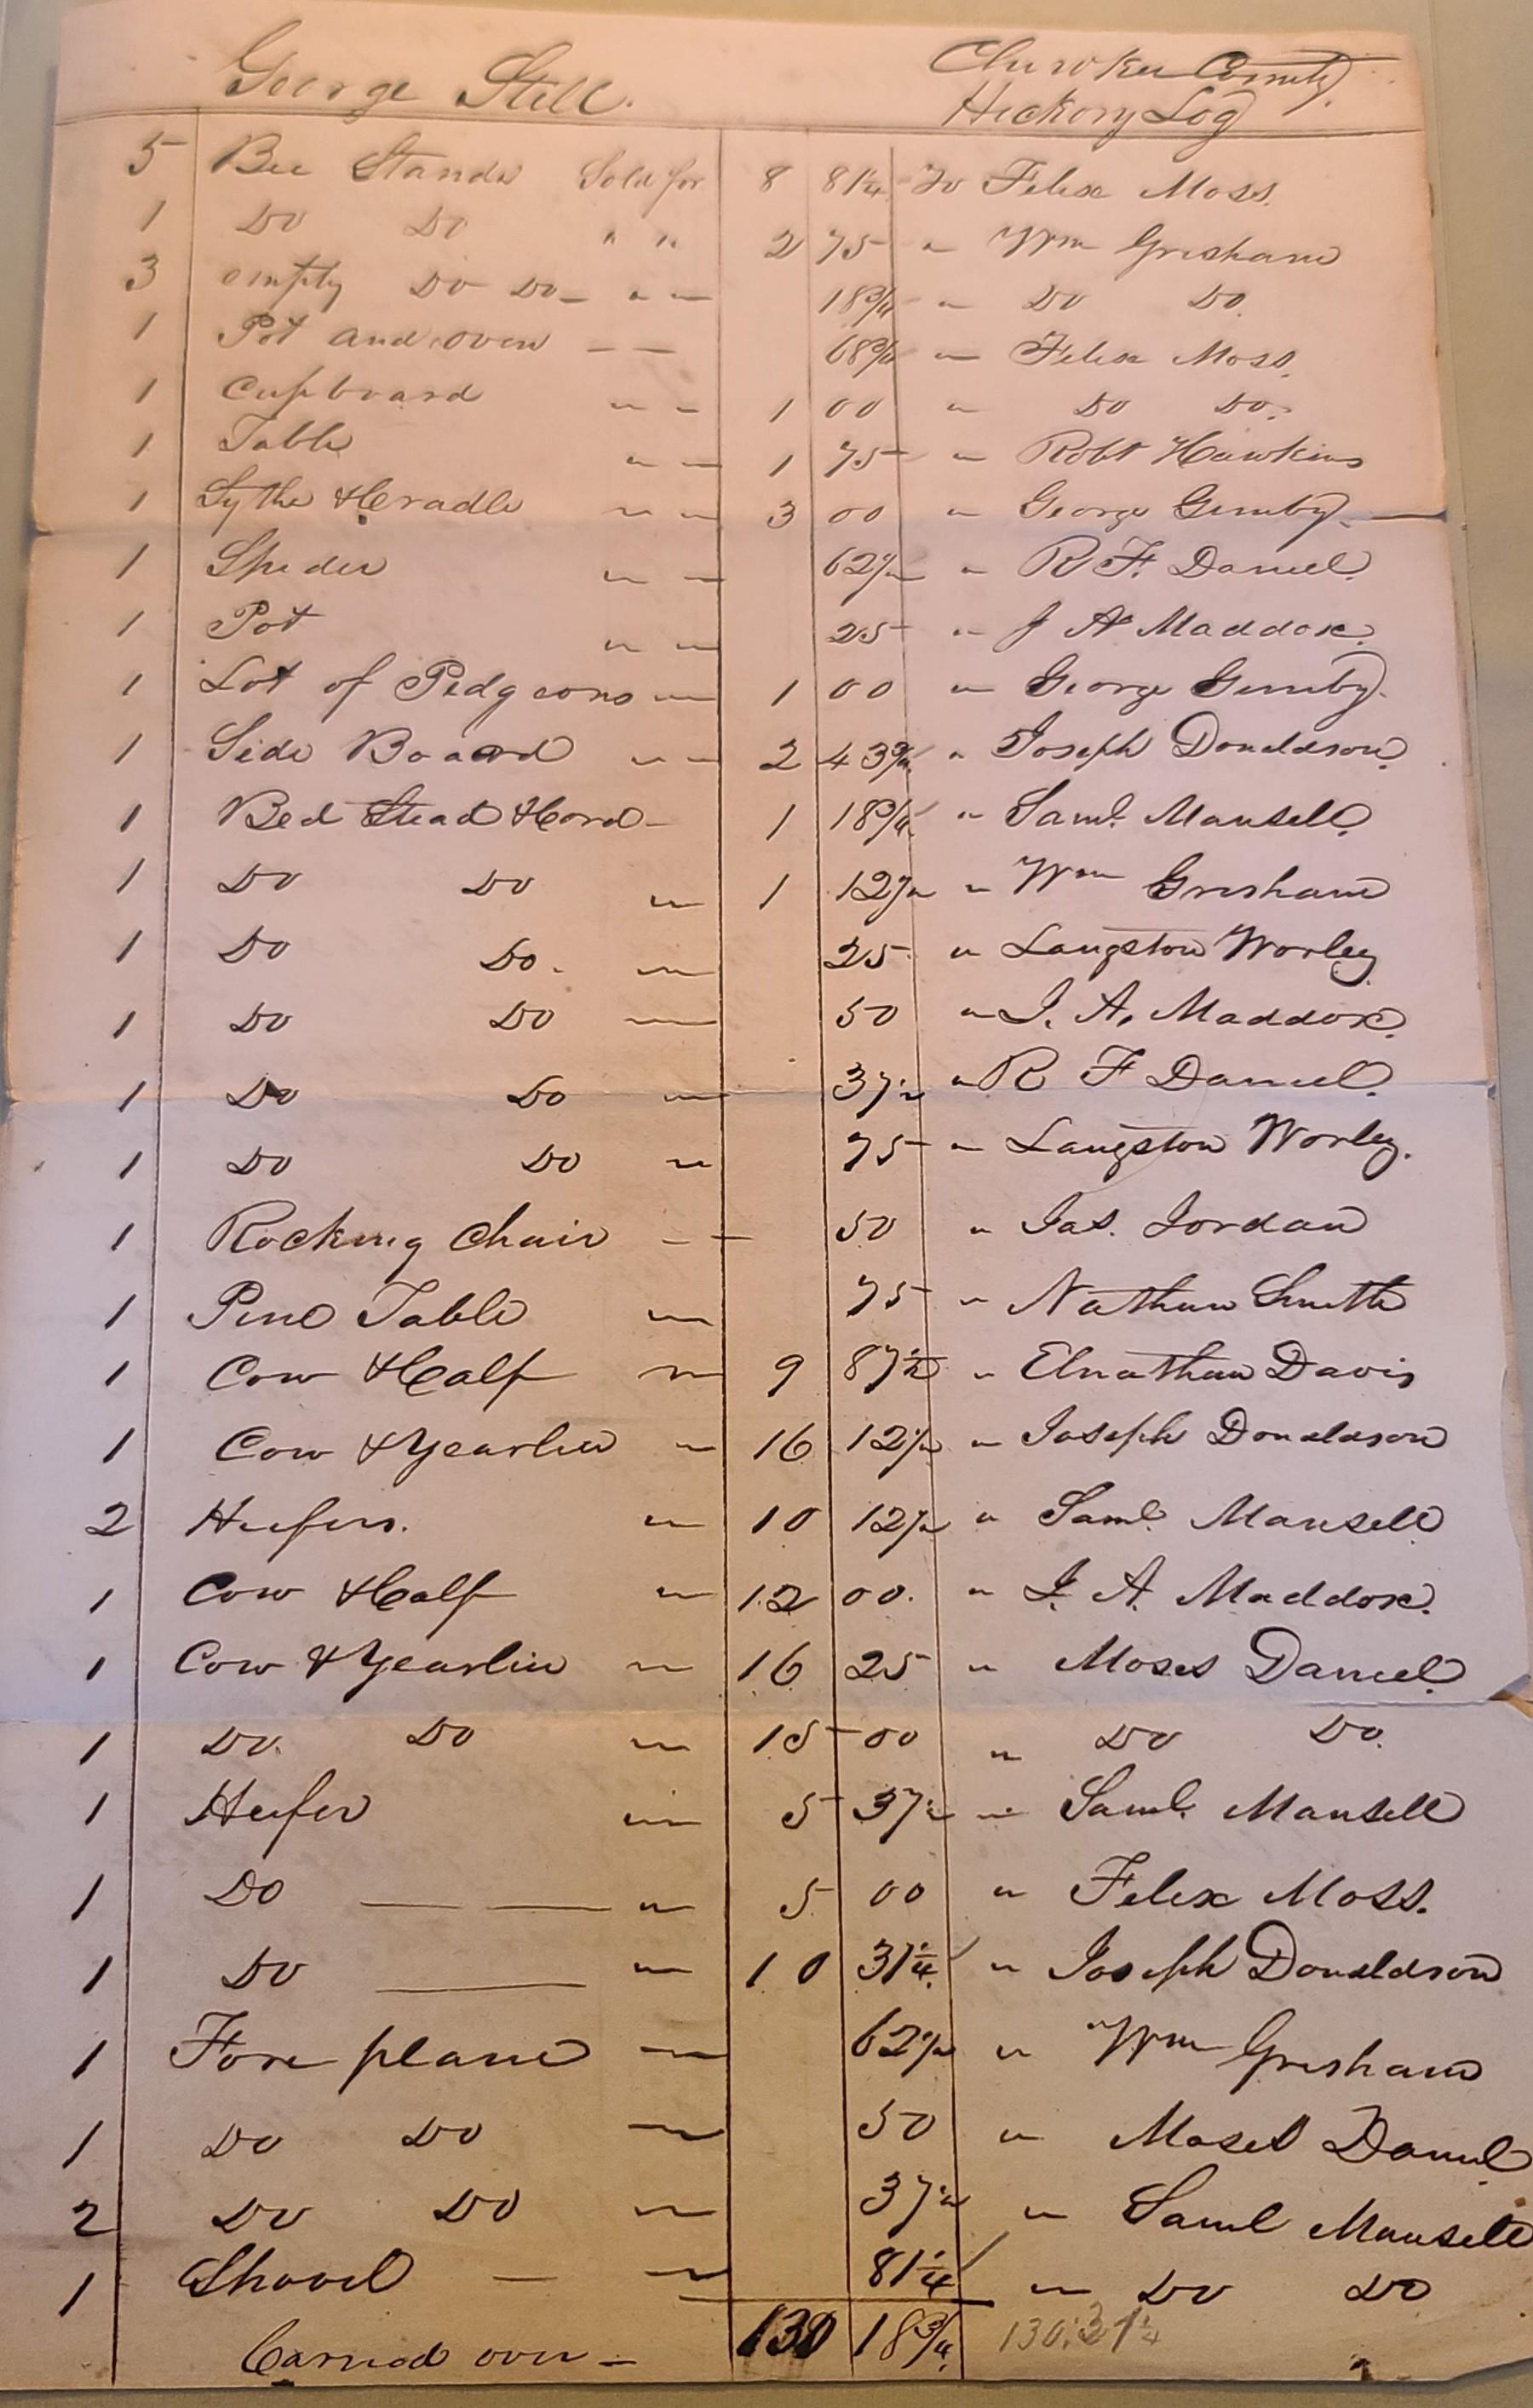 George Still. Cherokee County.
Hickory Log
5 Bee Stands Sold for 8 81¼ To Felix Moss.
1 Do Do " " 2 75 " Wm Grisham
3 empty Do Do " " 18¾ " Do Do.
1 Pot and oven — — 68¾ " Felix Moss.
1 Cupboard " " 1 00 " Do Do.
1 Table " " 1 75 " Robt Hawkins
1 Sythe & Cradle " " 3 00 " George
1 Spider " " 62½ " R F. Daniel.
1 Pot " " 25 " J A Maddox.
1 Lot of Pidgeons " 1 00 " George
1 Side Board " " 2 43¾ " Joseph Donaldson.
1 Bed Stead & Cord — 1 18¾ " Saml. Mansell.
1 Do Do " 1 12½ " Wm Grisham
1 Do Do. " 25 " Langston Worley.
1 Do Do " 50 " J. A. Maddox.
1 Do Do " 37½ " R F Daniel.
1 Do Do " 75 " Langston Worley.
1 Rocking Chair — — 50 " Jas. Jordan
1 Pine Table " 75 " Nathan Smith
1 Cow & Calf " 9 87½ " Elnathan Davis
1 Cow & Yearlin " 16 12½ " Joseph Donaldson
2 Heifers. " 10 12½ " Saml. Mansell
1 Cow & Calf " 12 00. " J. A. Maddox.
1 Cow & Yearlin " 16 25 " Moses Daniel.
1 Do. Do " 15 00 " Do Do.
1 Heifer " 5 37½ " Saml. Mansell
1 Do — — " 5 00 " Felix Moss.
1 Do — " 10 31¼ " Joseph Donaldson
1 Fore plane " 62½ " Wm Grisham
1 Do Do " 50 " Moses Daniel
2 Do Do " 37½ " Saml Mansell
1 Shovel — " 81¼ " Do Do
Carried over — 130 18¾ 130.31¼